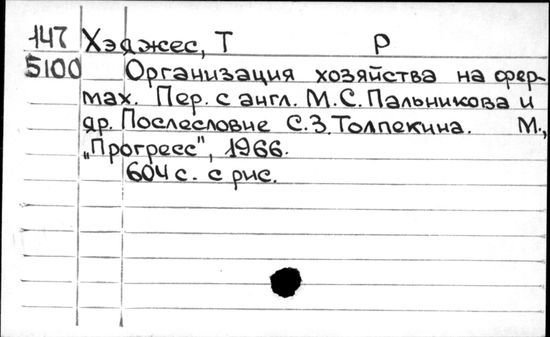 147 Хэджес, Т Р
5100 Организация хозяйства на фер-
мах. Пер. с англ. М.С. Пальникова и
др. Послесловие С.З. Толпекина. М.,
„Прогресс", 1966.
604 с. с рис.